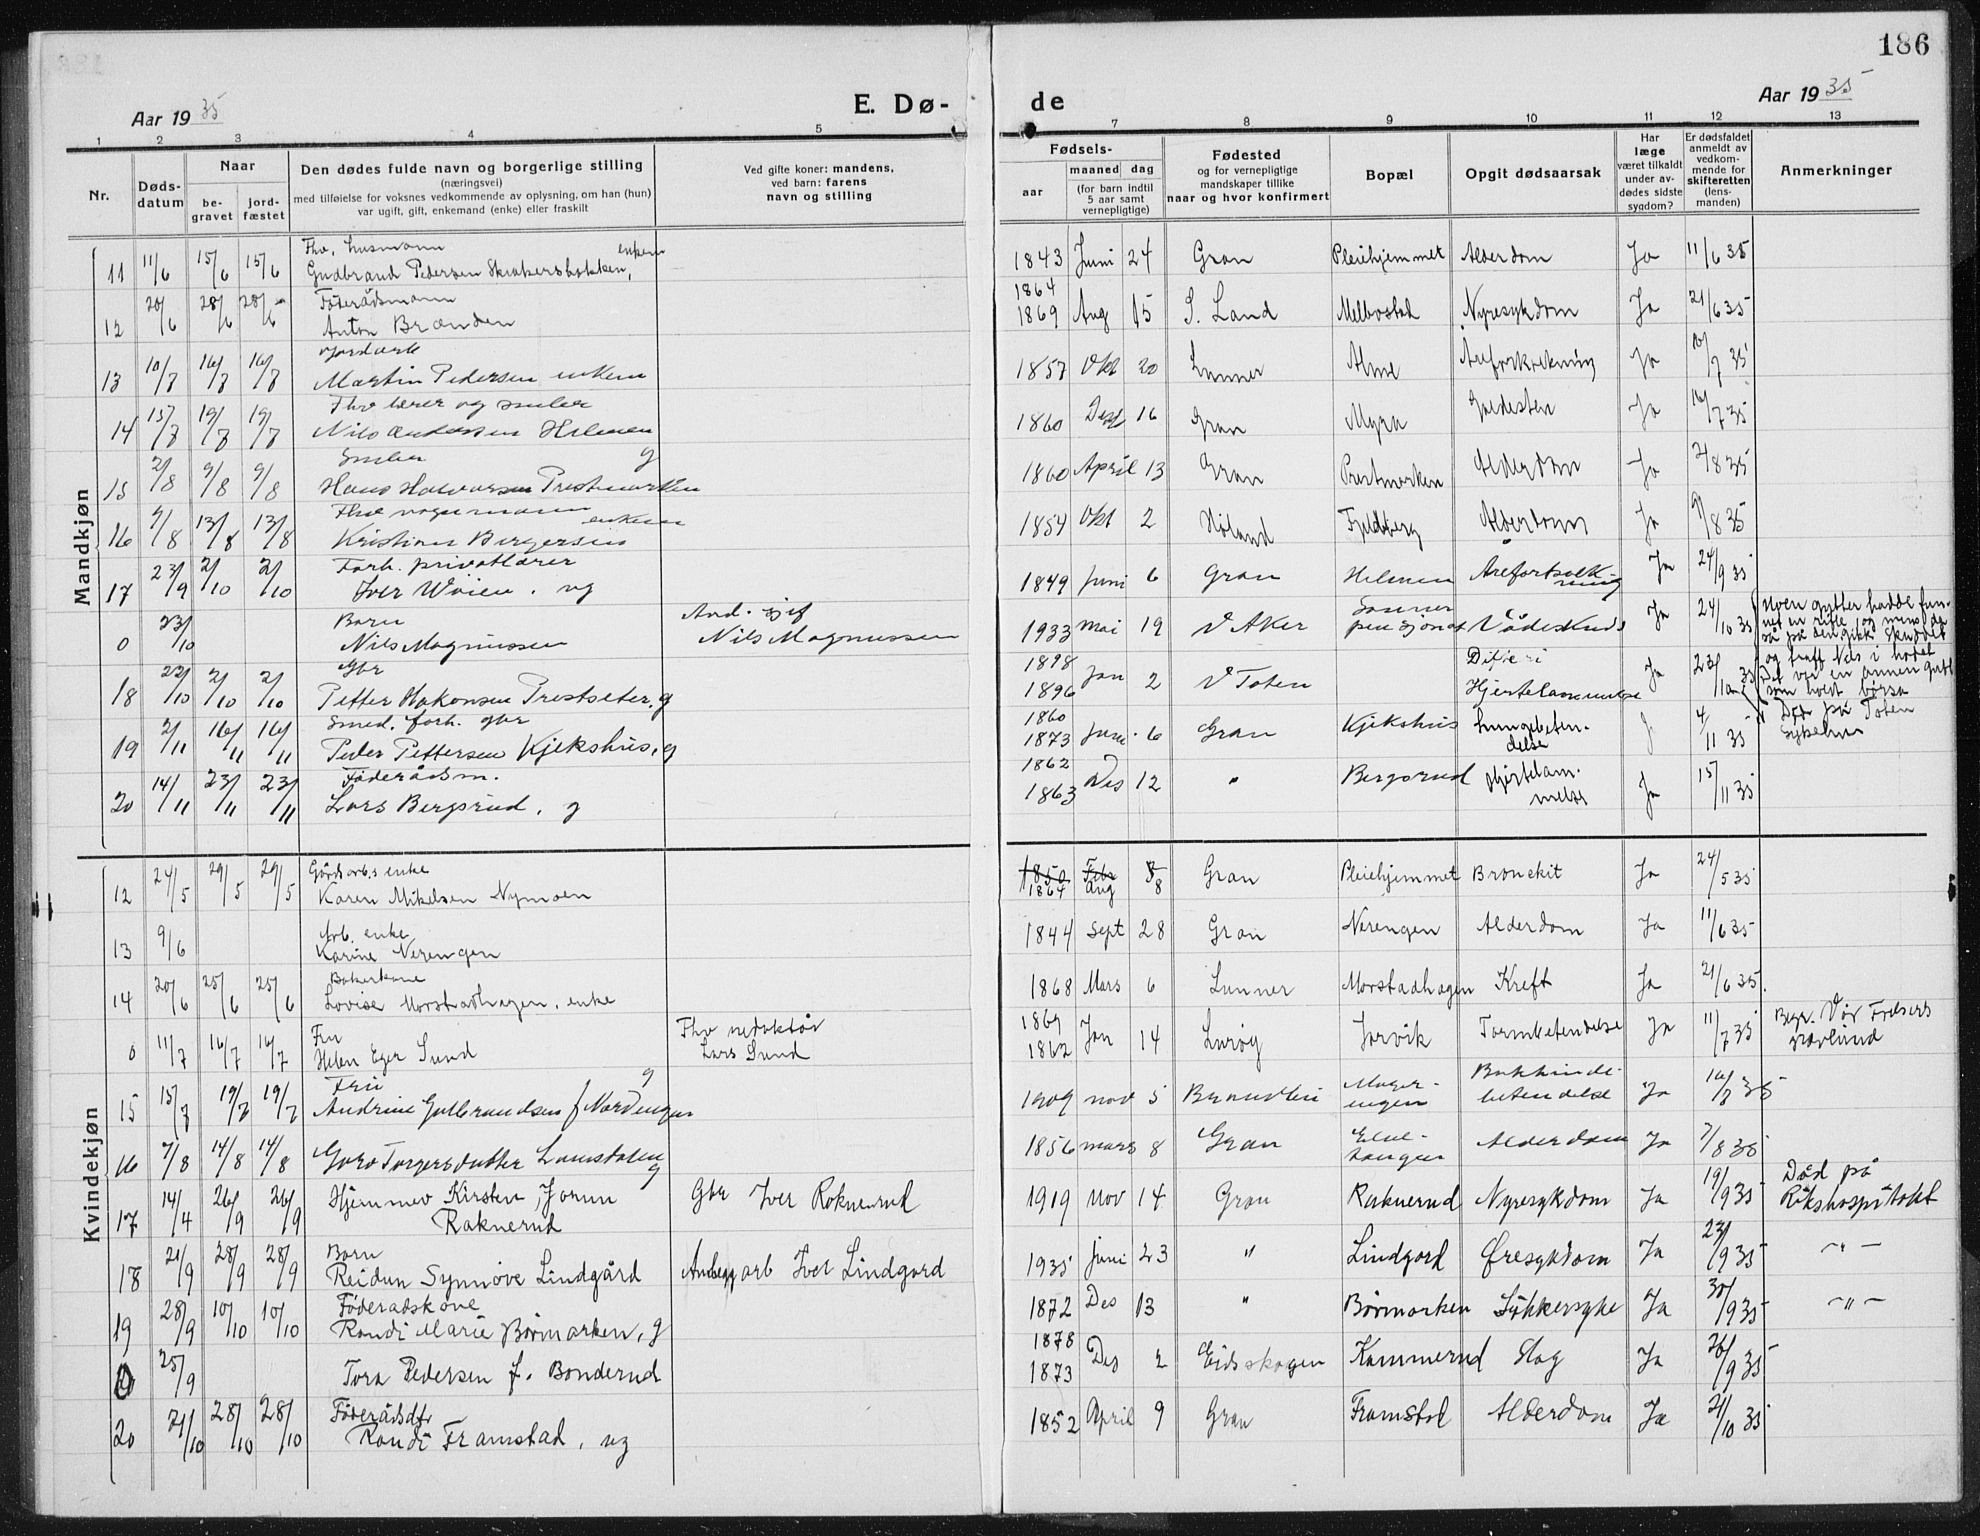 186
Aar 1935
E. Dø-
de
Aar 1935
1 2 3 4 5
7 8 9 10 11 12 13
Nr.
Døds-
datum
Naar
be-
gravet
jord-
fæstet
Den dødes fulde navn og borgerlige stilling
(næringsvei)
med tilføielse for voksnes vedkommende av oplysning, om han (hun)
var ugift, gift, enkemand (enke) eller fraskilt
Ved gifte koner: mandens,
ved barn: farens
navn og stilling
Fødsels-
aar
maaned dag
(for barn indtil
5 aar samt
vernepligtige)
Fødested
og for vernepligtige
mandskaper tillike
naar og hvor konfirmert
Bopæl
Opgit dødsaarsak
Har
læge
været tilkaldt
under av-
dødes sidste
sygdom?
Er dødsfaldet
anmeldt av
vedkom-
mende for
skifteretten
(lens-
manden)
Anmerkninger
Mandkjøn
Fhv. husmann enkem
11 11/6 15/6 15/6 Gudbrand Pedersen 1843 Juni 24 Gran Pleiehjemmet Alderdom Ja 11/6 35
Føderådsmann 1864
12 20/6 28/6 28/6 Anton Brænden 1869 Aug 15 S. Land Melbostad Nyresykdom Ja 21/6 35
13 10/7 16/7 16/7 Martin Pedersen enkem 1857 Okt 20 Lunner Alme Åreforkalkning Ja 10/7 35
Fhv lærer og
14 15/7 19/7 19/7 Nils Andersen Helmen 1860 Des 16 Gran Myra Galdesten Ja 16/7 35
g
15 2/8 9/8 9/8 Hans Halvorsen Prestmarken 1860 April 13 Gran Prestmarken Alderdom Ja 2/8 35
Fhv vognmann enkem
16 9/8 13/8 13/8 Kristian Bergersen 1854 Okt 2 Høland Fjeldberg Alderdom Ja 9/8 35
Forh. privatlærer
17 23/9 2/10 2/10 Iver Wøien. ug 1849 Juni 6 Gran Helmen Åreforkalk-
ning Ja 24/9 35
Barn
0 23/10 Nils Magnussen
Nils Magnussen 1933 Mai 19 V Aker Vådeskudd Ja 24/10 35
og traff Nils i hodet
Det var en annen gutt
som holdt børsa
Gbr 1898 Difteri
18 22/10 2/11 2/11 Petter Hakonsen Prestseter. g 1896 Jan 2 V Toten Hjertelammelse Ja 23/10 35 Død på Toten
Sykehus
Smed, forh. gbr 1860
19 2/11 16/11 16/11 Peder Pettersen Kjekshus, g 1873 Juni 6 Gran Kjekshus Lungebeten-
delse J 4/11 35
Føderådsm. 1862
20 14/11 23/11 23/11 Lars Bergsrud, g 1863 Des 12 " Bergsrud Hjertelam-
melse Ja 15/11 35
Kvindekjøn
Gårdsarb.s enke 1850 Febr
12 24/5 29/5 29/5 Karen Mikelsen Nymoen 1864 Aug 8 Gran Pleiehjemmet Bronekit Ja 24/5 35
Arb. enke
13 9/6 Karine Nerengen 1844 Sept 28 Gran Nerengen Alderdom Ja 11/6 35
Bakerkone
14 20/6 25/6 25/6 Lovise Morstadhagen, enke 1868 Mars 6 Lunner Morstadhagen Kreft Ja 21/6 35.
Fru Fhv redaktør 1869
0 11/7 16/7 16/7 Helen Eger Sund Lars Sund 1862 Jan 14 Lurøy Jorvik Tarmbetendelse Ja 11/7 35 Begr. Vår Frelsers
gravlund
Fru g
15 15/7 19/7 19/7 Andrine Gulbrandsen f Nordengen 1909 nov 5 Brandbu Bukhinde-
betendelse Ja 16/7 35
16 7/8 14/8 14/8 Goro Torgersdatter Lamstalen g 1856 mars 8 Gran Alderdom Ja 7/8 35
17 14/4 26/9 26/9 Hjemmev Kirsten Jorun
Raknerud Gbr Iver Raknerud 1919 nov 14 Gran Raknerud Nyresykdom Ja 19/9 35 Død på
Rikshospitalet
Barn
18 21/9 28/9 28/9 Reidun Synnøve Lindgård Anleggarb Ivar Lindgard 1935 juni 23 " Lindgard Øresykdom Ja 23/9 35 - " -
Føderadskone
19 28/9 10/10 10/10 Randi Marie Børmarken, g 1872 Des 13 " Børmarken Sukkersyke Ja 30/9 35 - " -
1878
0 25/9 Tora Pedersen f. Bonderud 1873 Des 2 Eidskogen Kammerud Slag Ja 26/9 35
Føderådsdtr
20 21/10 28/10 28/10 Randi Framstad, ug 1852 April 9 Gran Framstad Alderdom Ja 21/10 35